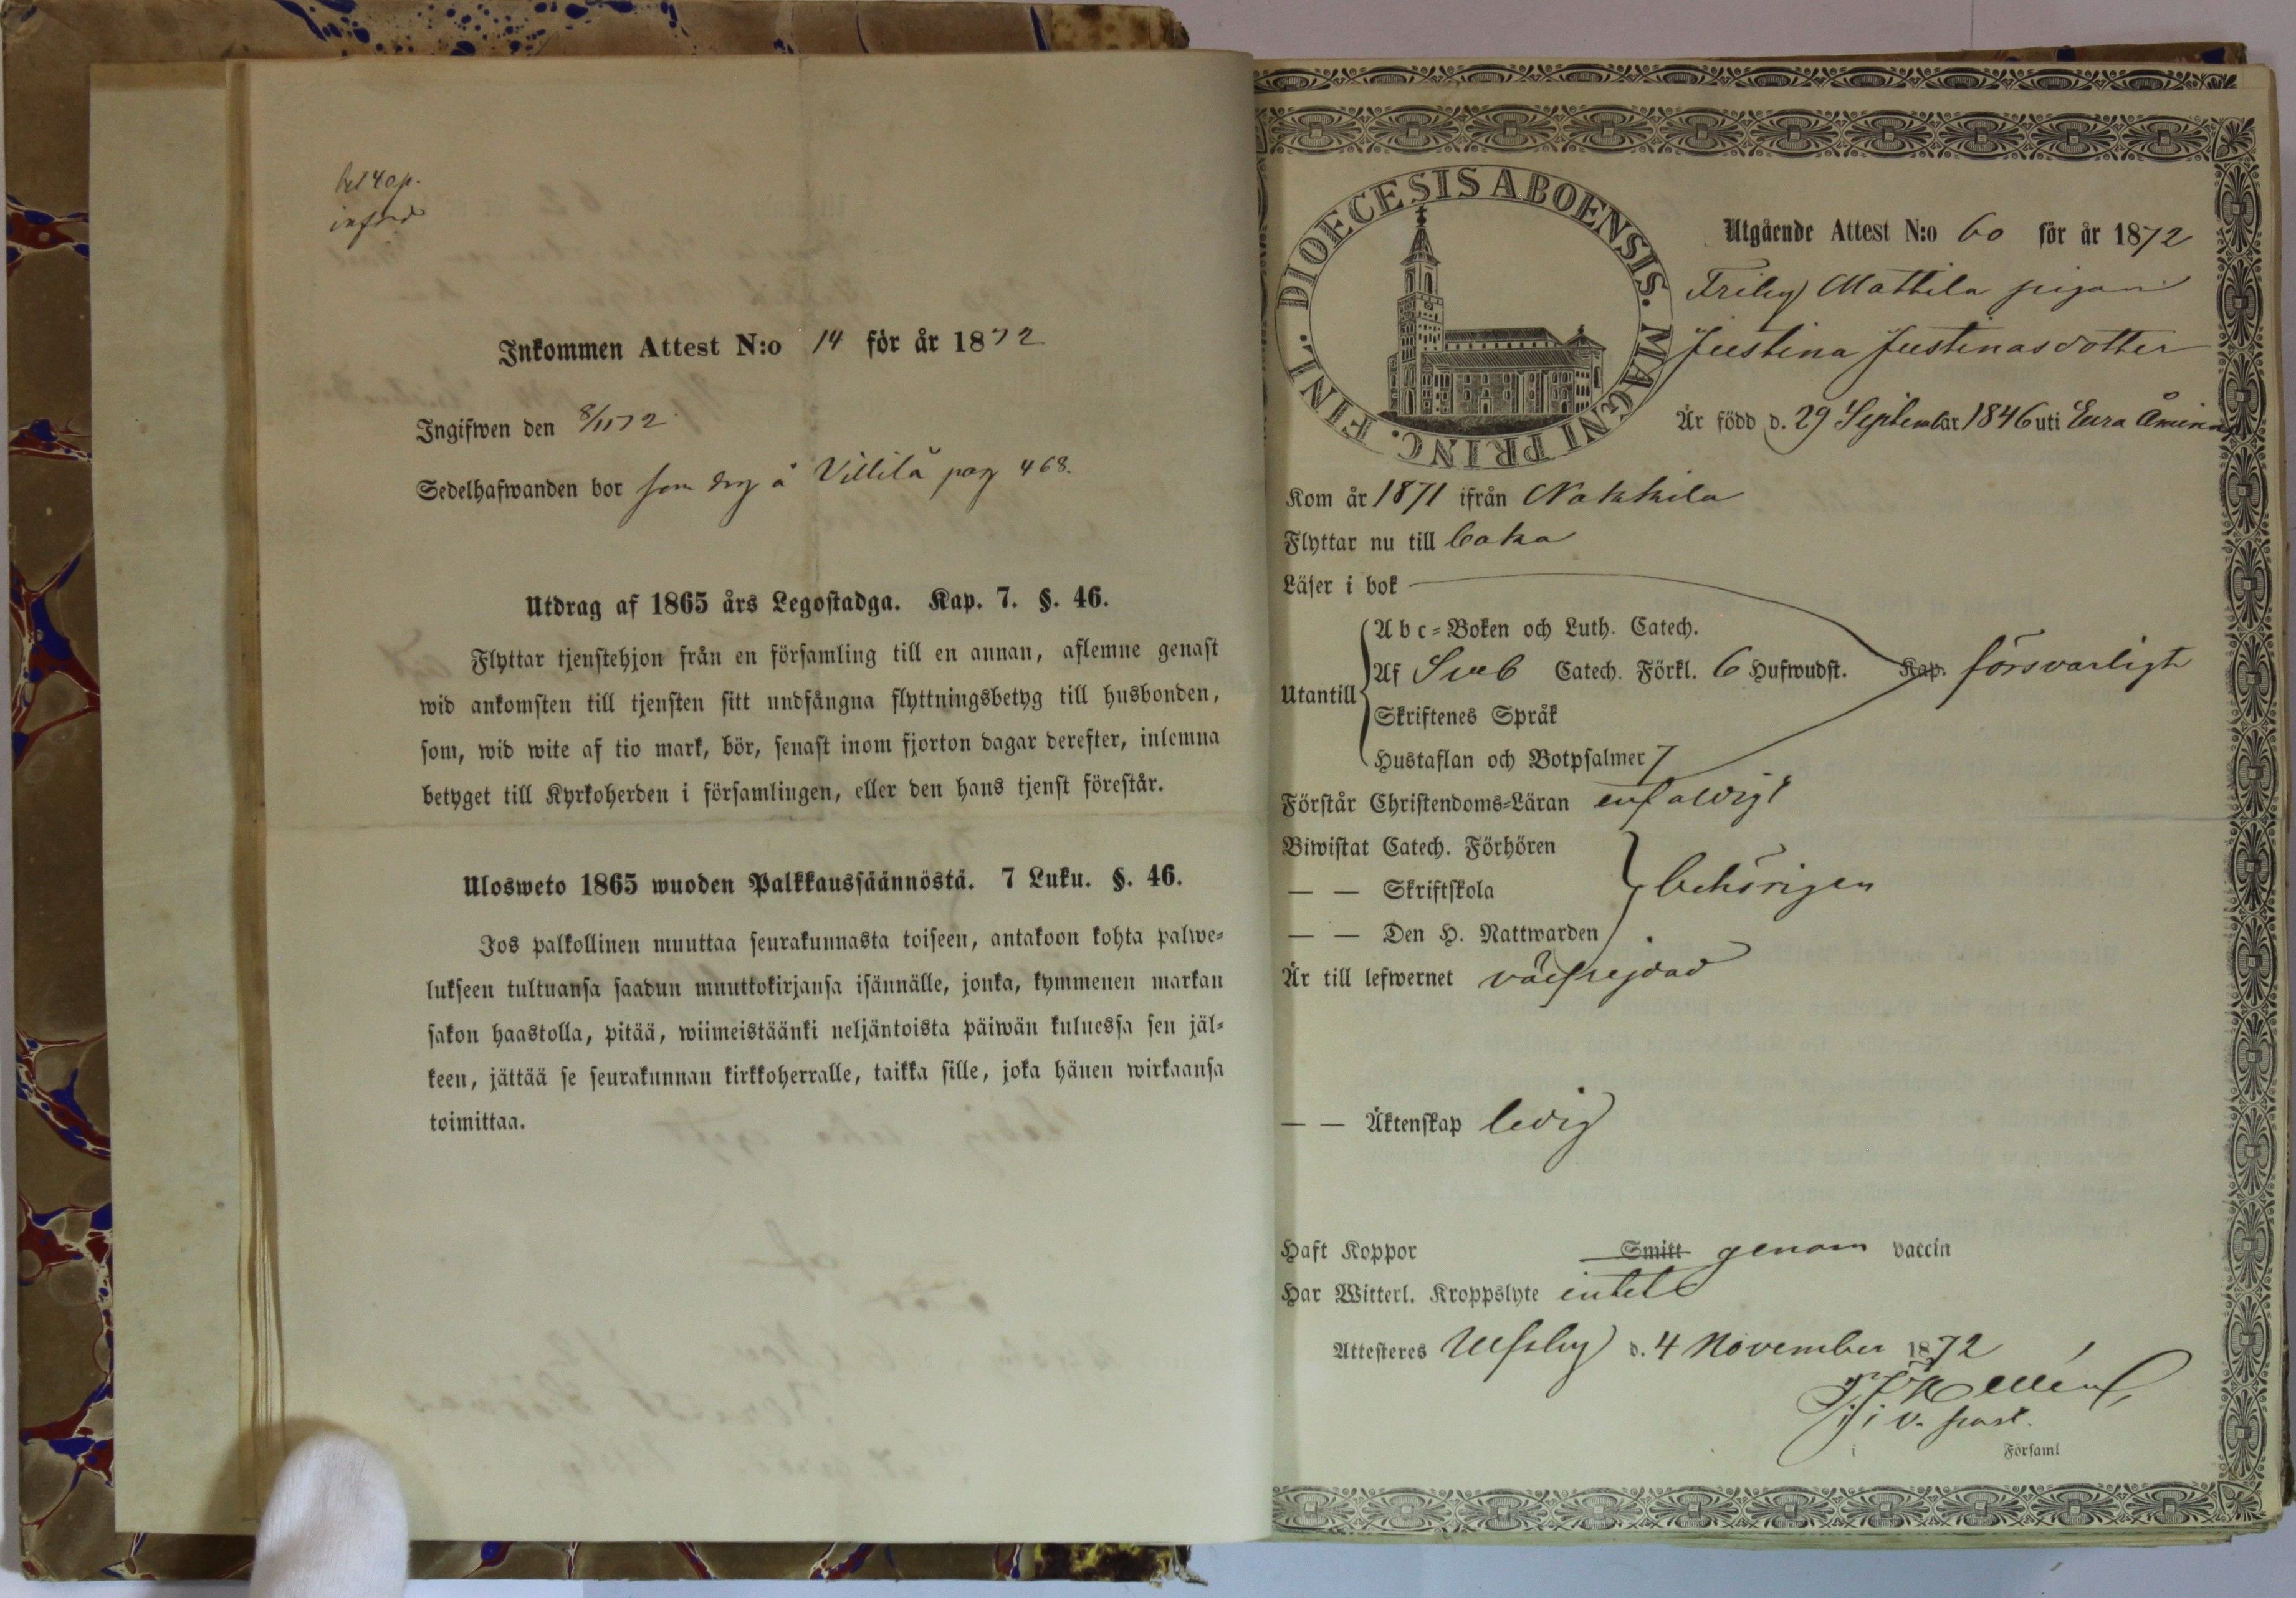 införd
Inkommen Attest N:o 14 för år 1872
Ingifwen den 8/11 72
Sedelhafwanden bor som drg å Villilä pag 468.
Utdrag af 1865 års Legostadga. Kap. 7. §. 46.
Flyttar tjenstehjon från en församling till en annan, aflemne genast
wid ankomsten till tjensten sitt undfångna flyttningsbetyg till husbonden,
som, wid wite af tio mark, bör, senast inom fjorton dagar derefter, inlemna
betyget till Kyrkoherden i församlingen, eller den hans tjenst förestår.
Ulosweto 1865 wuoden Palkkaussäännöstä. 7 Luku. §. 46.
Jos palkollinen muuttaa seurakunnasta toiseen, antakoon kohta palwe=
lukseen tultuansa saadun muuttokirjansa isännälle, jonka, kymmenen markan
sakon haastolla, pitää, wiimeistäänki neljäntoista päiwän kuluessa sen jäl=
keen, jättää se seurakunnan kirkkoherralle, taikka sille, joka hänen wirkaansa
toimittaa.
DIOECESIS ABOENSIS. MAGNI PRINC. FINL.
Utgående Attest N:o 60 för år 1872
Friby Mattila pigan
Justina Justinasdotter
Är född d. 29 Septembär 1846 uti Eura Åminne
Kom år 1871 ifrån Nakkila
Flyttar nu till
Läser i bok
Utantill
Abc=Boken och Luth. Catech.
Af Sveb Catech. Förkl. 6 Hufwudst. Kap. försvarligt
Skriftenes Språk
Hustaflan och Botpsalmer 7
Förstår Christendoms=Läran enfaldigt
Biwistat Catech. Förhören
— — Skriftskola behörigen
— — Den H. Nattwarden
Är till lefwernet välfrejdad
— — Äktenskap ledig
Haft Koppor Smitt genom vaccin
Har Witterl. Kroppslyte intet
Attesteres Ulfsby d. 4 November 1872
v. past.
i Församl